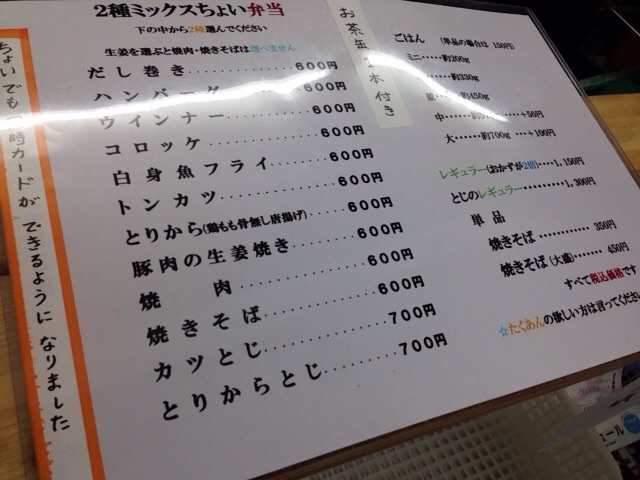 2種ミックスちょい弁当
下の中から2種選んでください
生姜を選ぶと焼肉・焼きそばは選べません
だし巻き............600円
ハンバーグ..........600円
ウインナー..........600円
コロッケ............600円
白身魚フライ........600円
トンカツ............600円
とりから(鶏もも骨無し唐揚げ)......600円
豚肉の生姜焼き......600円
焼 肉...............600円
焼きそば............600円
カツとじ............700円
とりからとじ........700円
お茶缶1本付き
ごはん (単品の場合は 150円)
ミニ……約200g
……約330g
並……約450g
中…… ……+50円
大……約700g ……+100円
レギュラー(おかずが2倍)……1,150円
とじのレギュラー…………1,300円
単品
焼きそば………… 350円
焼きそば(大盛)……… 450円
すべて税込価格です
☆たくあんの欲しい方は言ってください
ちょいでも 時カードが できるように なりました
ール